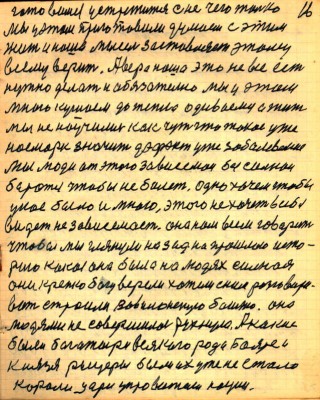 16
готовили устроится с не чего только
мы у этом приготовили думаем с этим
жит и наша мысел заставляет этому
всему верит. А вера наша это не все ест
нужно делат и обязателно мы у этом
много кушаем до тепла одиваемся и жит
мы не научилис как чут что такое уже
насморк значит дефект уже заболевание
мы люди от этого зависемся бессилная
борота чтобы не болет. одно хочем чтобы
у нас было и много, этого не хочт всё
видет независемаст. она нам всем говорит
чтобы мы глянули назад на прошлою исто-
рию какая она была на людях силная
они крепко боу верели хотели с ним разговари-
ват строили Вавилонскую башню. оно
людями не совершилос рухнуло. А какие
были богатыри всякого рода Бояре и
князя рыцеры былих уже не стало
короли, цари управители нации.